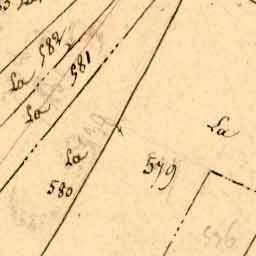 582
581
La
La
La
La
579
580